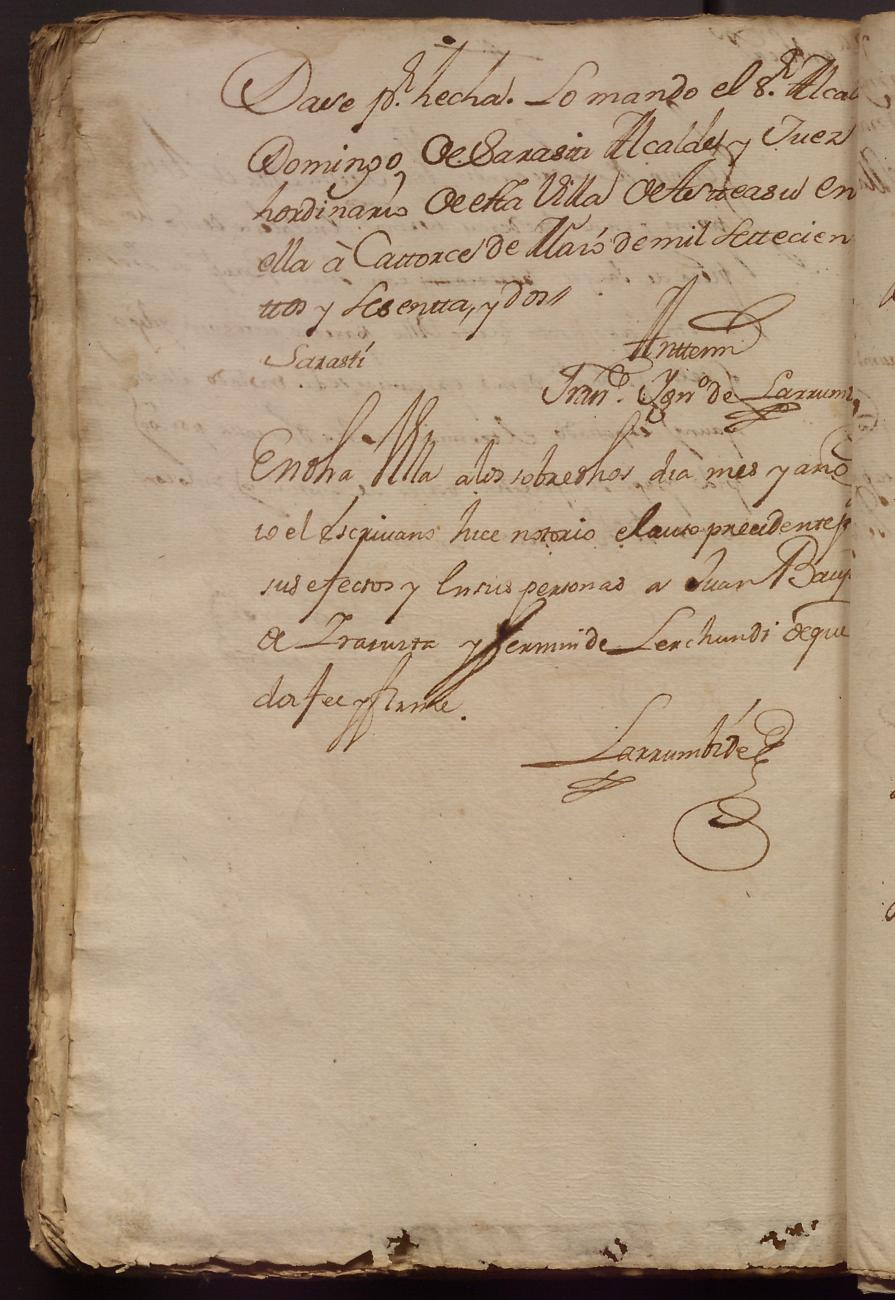 Dase pr. hecha. Lo mando el Sr. Alcal
Domingo de Sarasti Alcalde y Juez
hordinario de esta Villa de Asteasu en
ella à Cattorce de Maio de mil settecien
ttos y sesentta, y dos //
Sarasti
Antte mi
Frano. Ignº de Larrumb
En dha Villa a los sobredhos dia mes y año
io el escrivano hice notorio el auto precidente pa
sus efectos y en sus personas a Juan Baup
de Irazusta y Fermin de Lerchundi de que
doi fee y firme.
Larrumbide